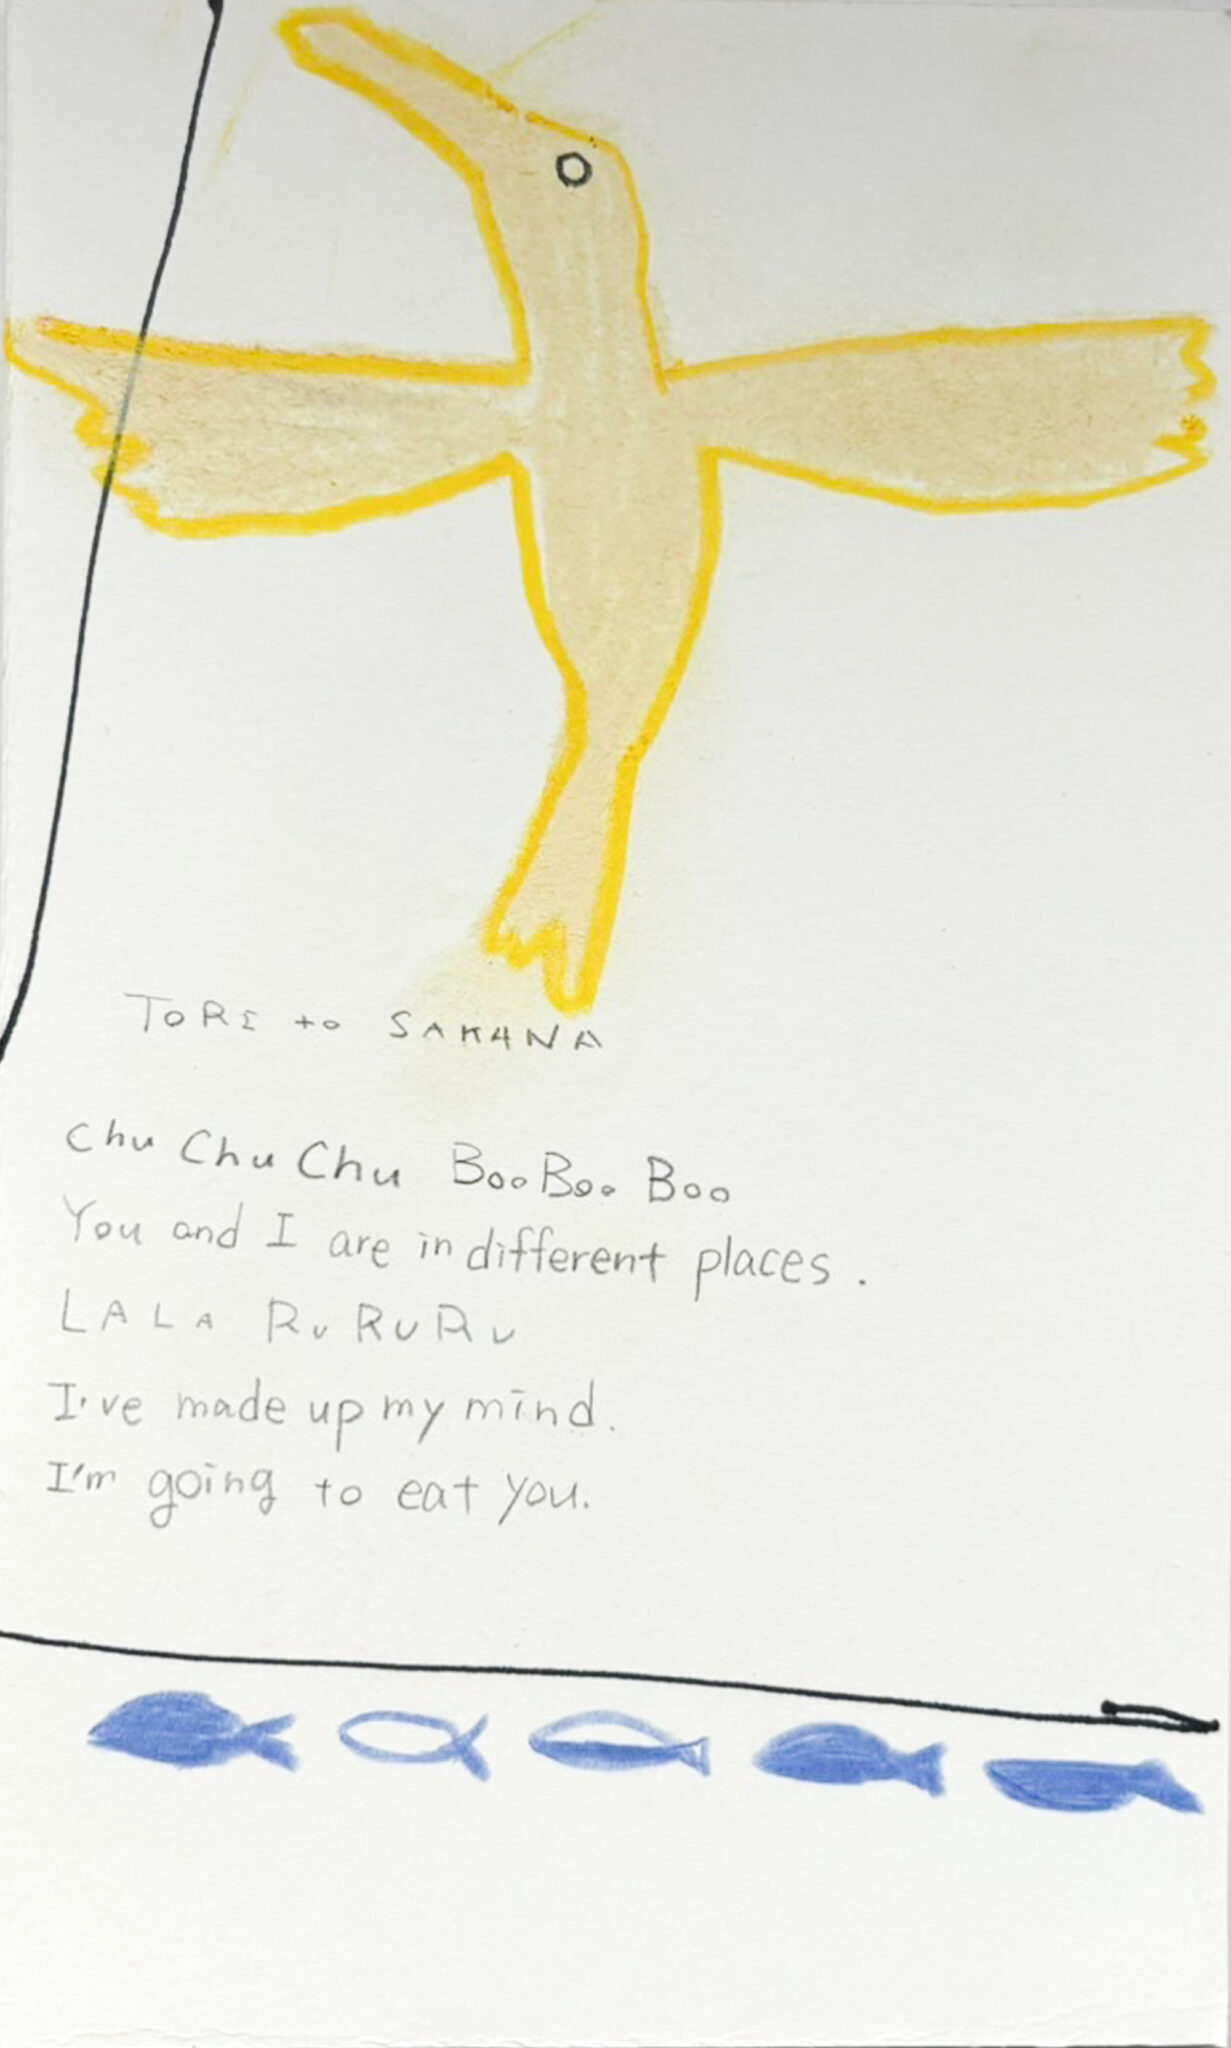 TORI to SAKANA
Chu Chu Chu Boo Boo Boo
You and I are in different places.
LALA RuRURu
I've made up my mind.
I'm going to eat you.